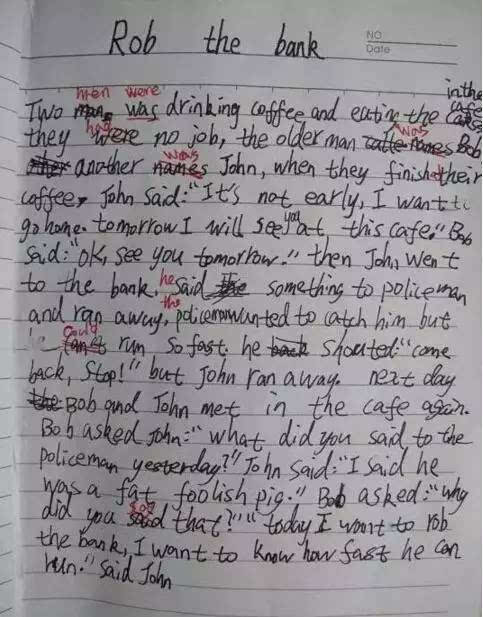 Rob the bank
NO.
Date
in the
men were cafe
Two man was drinking coffee and eating the cakes
had was
they were no job, the older man names Bob
was
another names John, when they finished their
coffee, John said: "It's not early, I want to
you
go home. tomorrow I will see at this cafe." Bob
said: "ok, see you tomorrow." then John went
he
to the bank, said something to policeman
the
and ran away, policeman wanted to catch him but
could
run so fast. he back shouted: "come
back, stop!" but John ran away. next day
the Bob and John met in the cafe again.
Bob asked John: "what did you said to the
policeman yesterday?" John said: "I said he
was a fat foolish pig." Bob asked: "why
say
did you said that?" "today I want to rob
the bank, I want to know how fast he can
run." said John